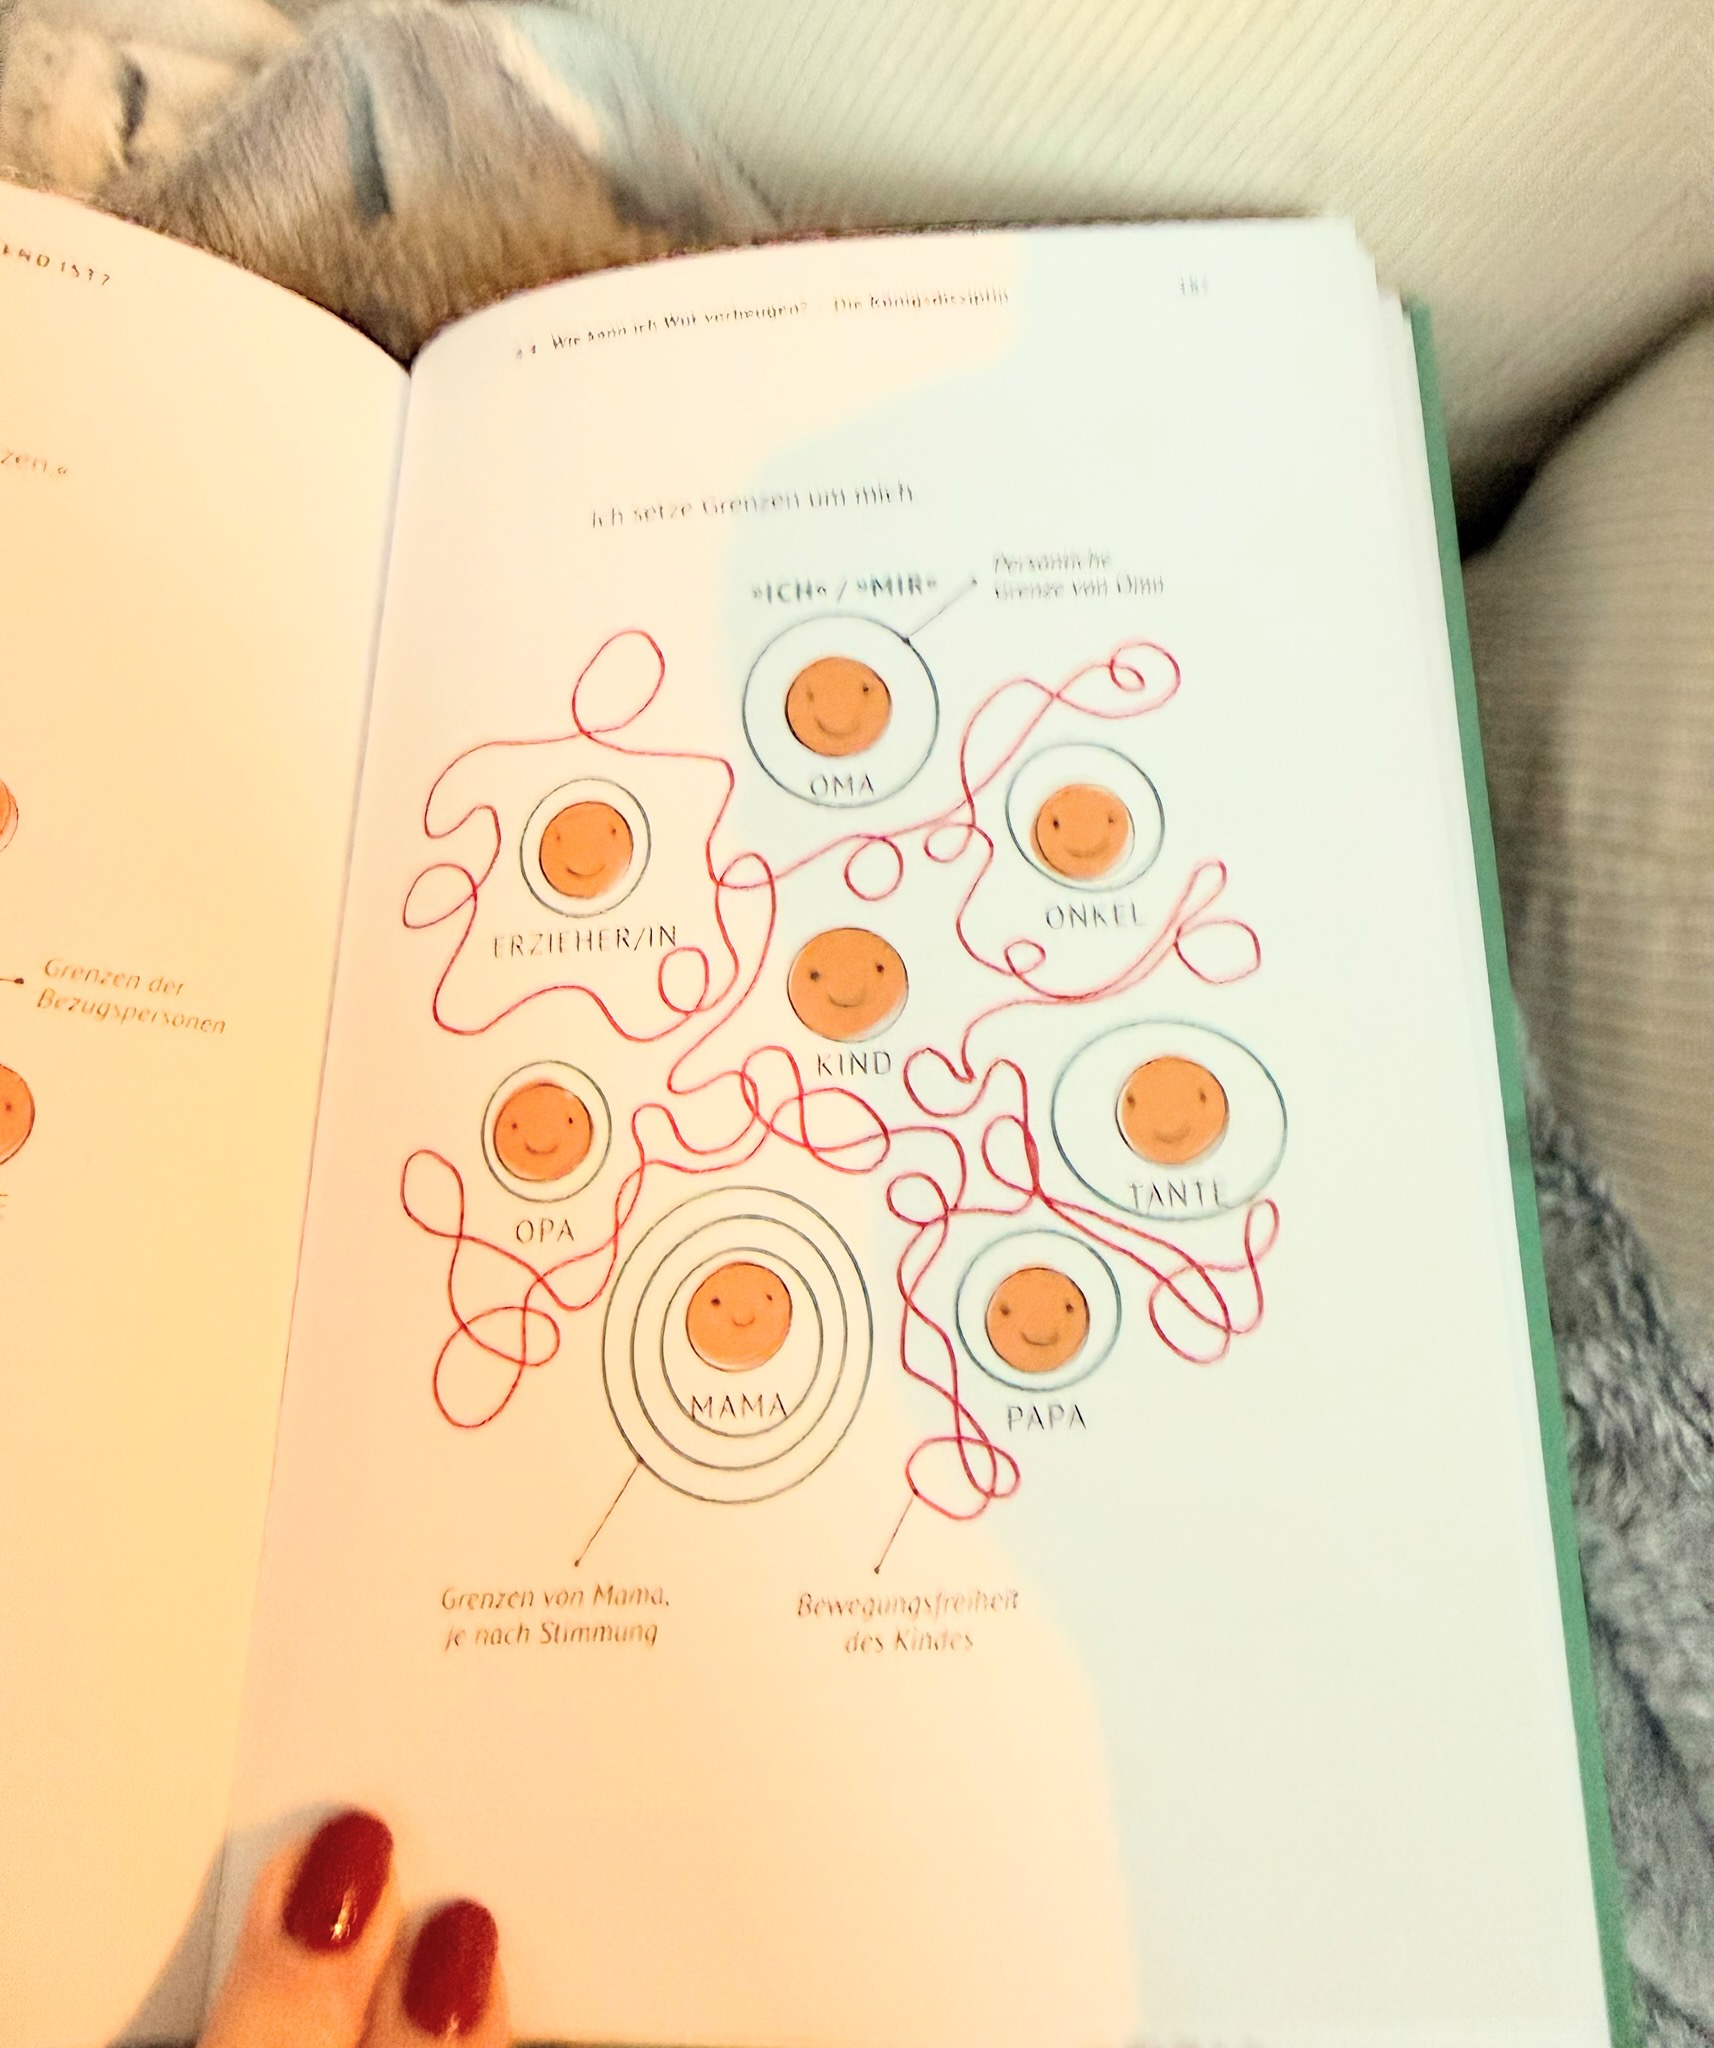 zen.«
Grenzen der
Bezugspersonen
Wie kann ich Wut vorbeugen? – Die Königsdisziplin
Ich setze Grenzen um mich
»ICH« / »MIR«
Persönliche
Grenze von Oma
OMA
ERZIEHER/IN
ONKEL
KIND
OPA
TANTE
MAMA
PAPA
Grenzen von Mama,
je nach Stimmung
Bewegungsfreiheit
des Kindes